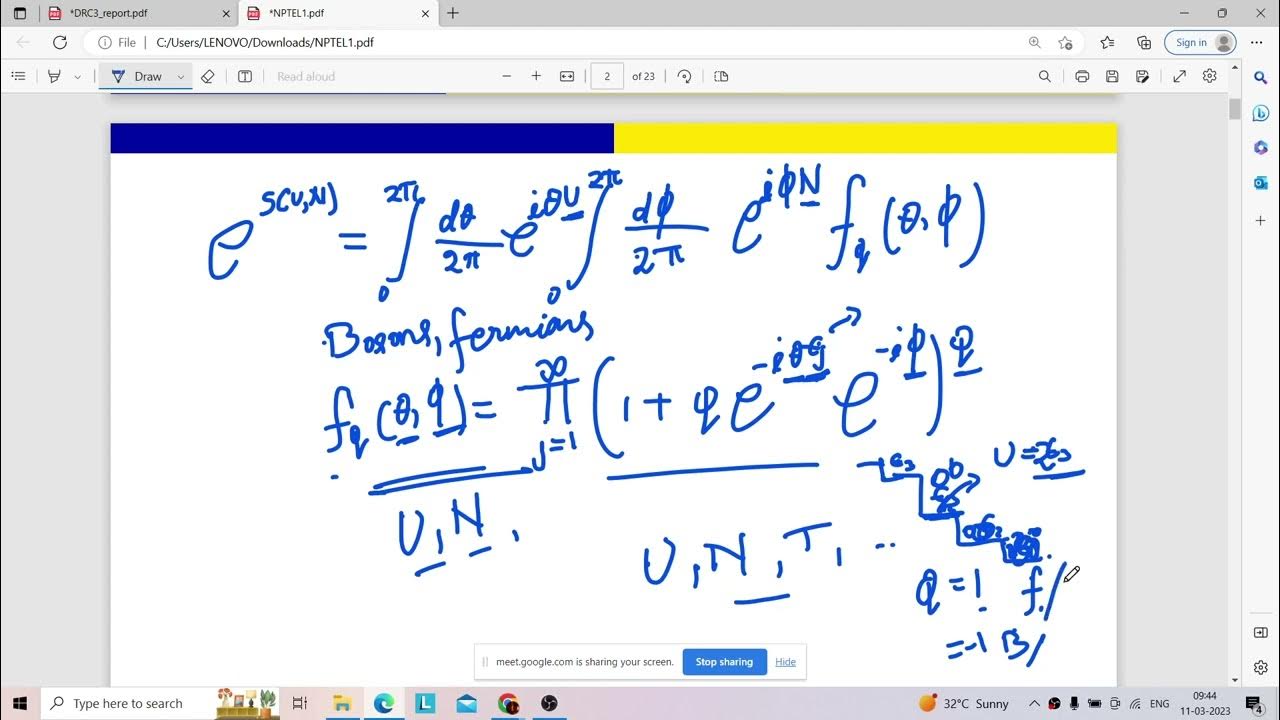 *DRC3_report.pdf
*NPTEL1.pdf
File C:/Users/LENOVO/Downloads/NPTEL1.pdf
Sign in
Draw
Read aloud
2 of 23
e^{S(U,N)} = ∫_0^{2π} dθ/2π e^{iθU} ∫_0^{2π} dφ/2π e^{iφN} f_q (θ, φ)
Bosons, fermions
f_q (θ, φ) = ∏_{j=1}^{∞} (1 + q e^{-iθ} e^{-iφ})^q
U = 
U, N,
U, N, T, ..
q = 1 f. /
= -1 B /
meet.google.com is sharing your screen.
Stop sharing
Hide
Type here to search
32°C Sunny
ENG
09:44
11-03-2023
4